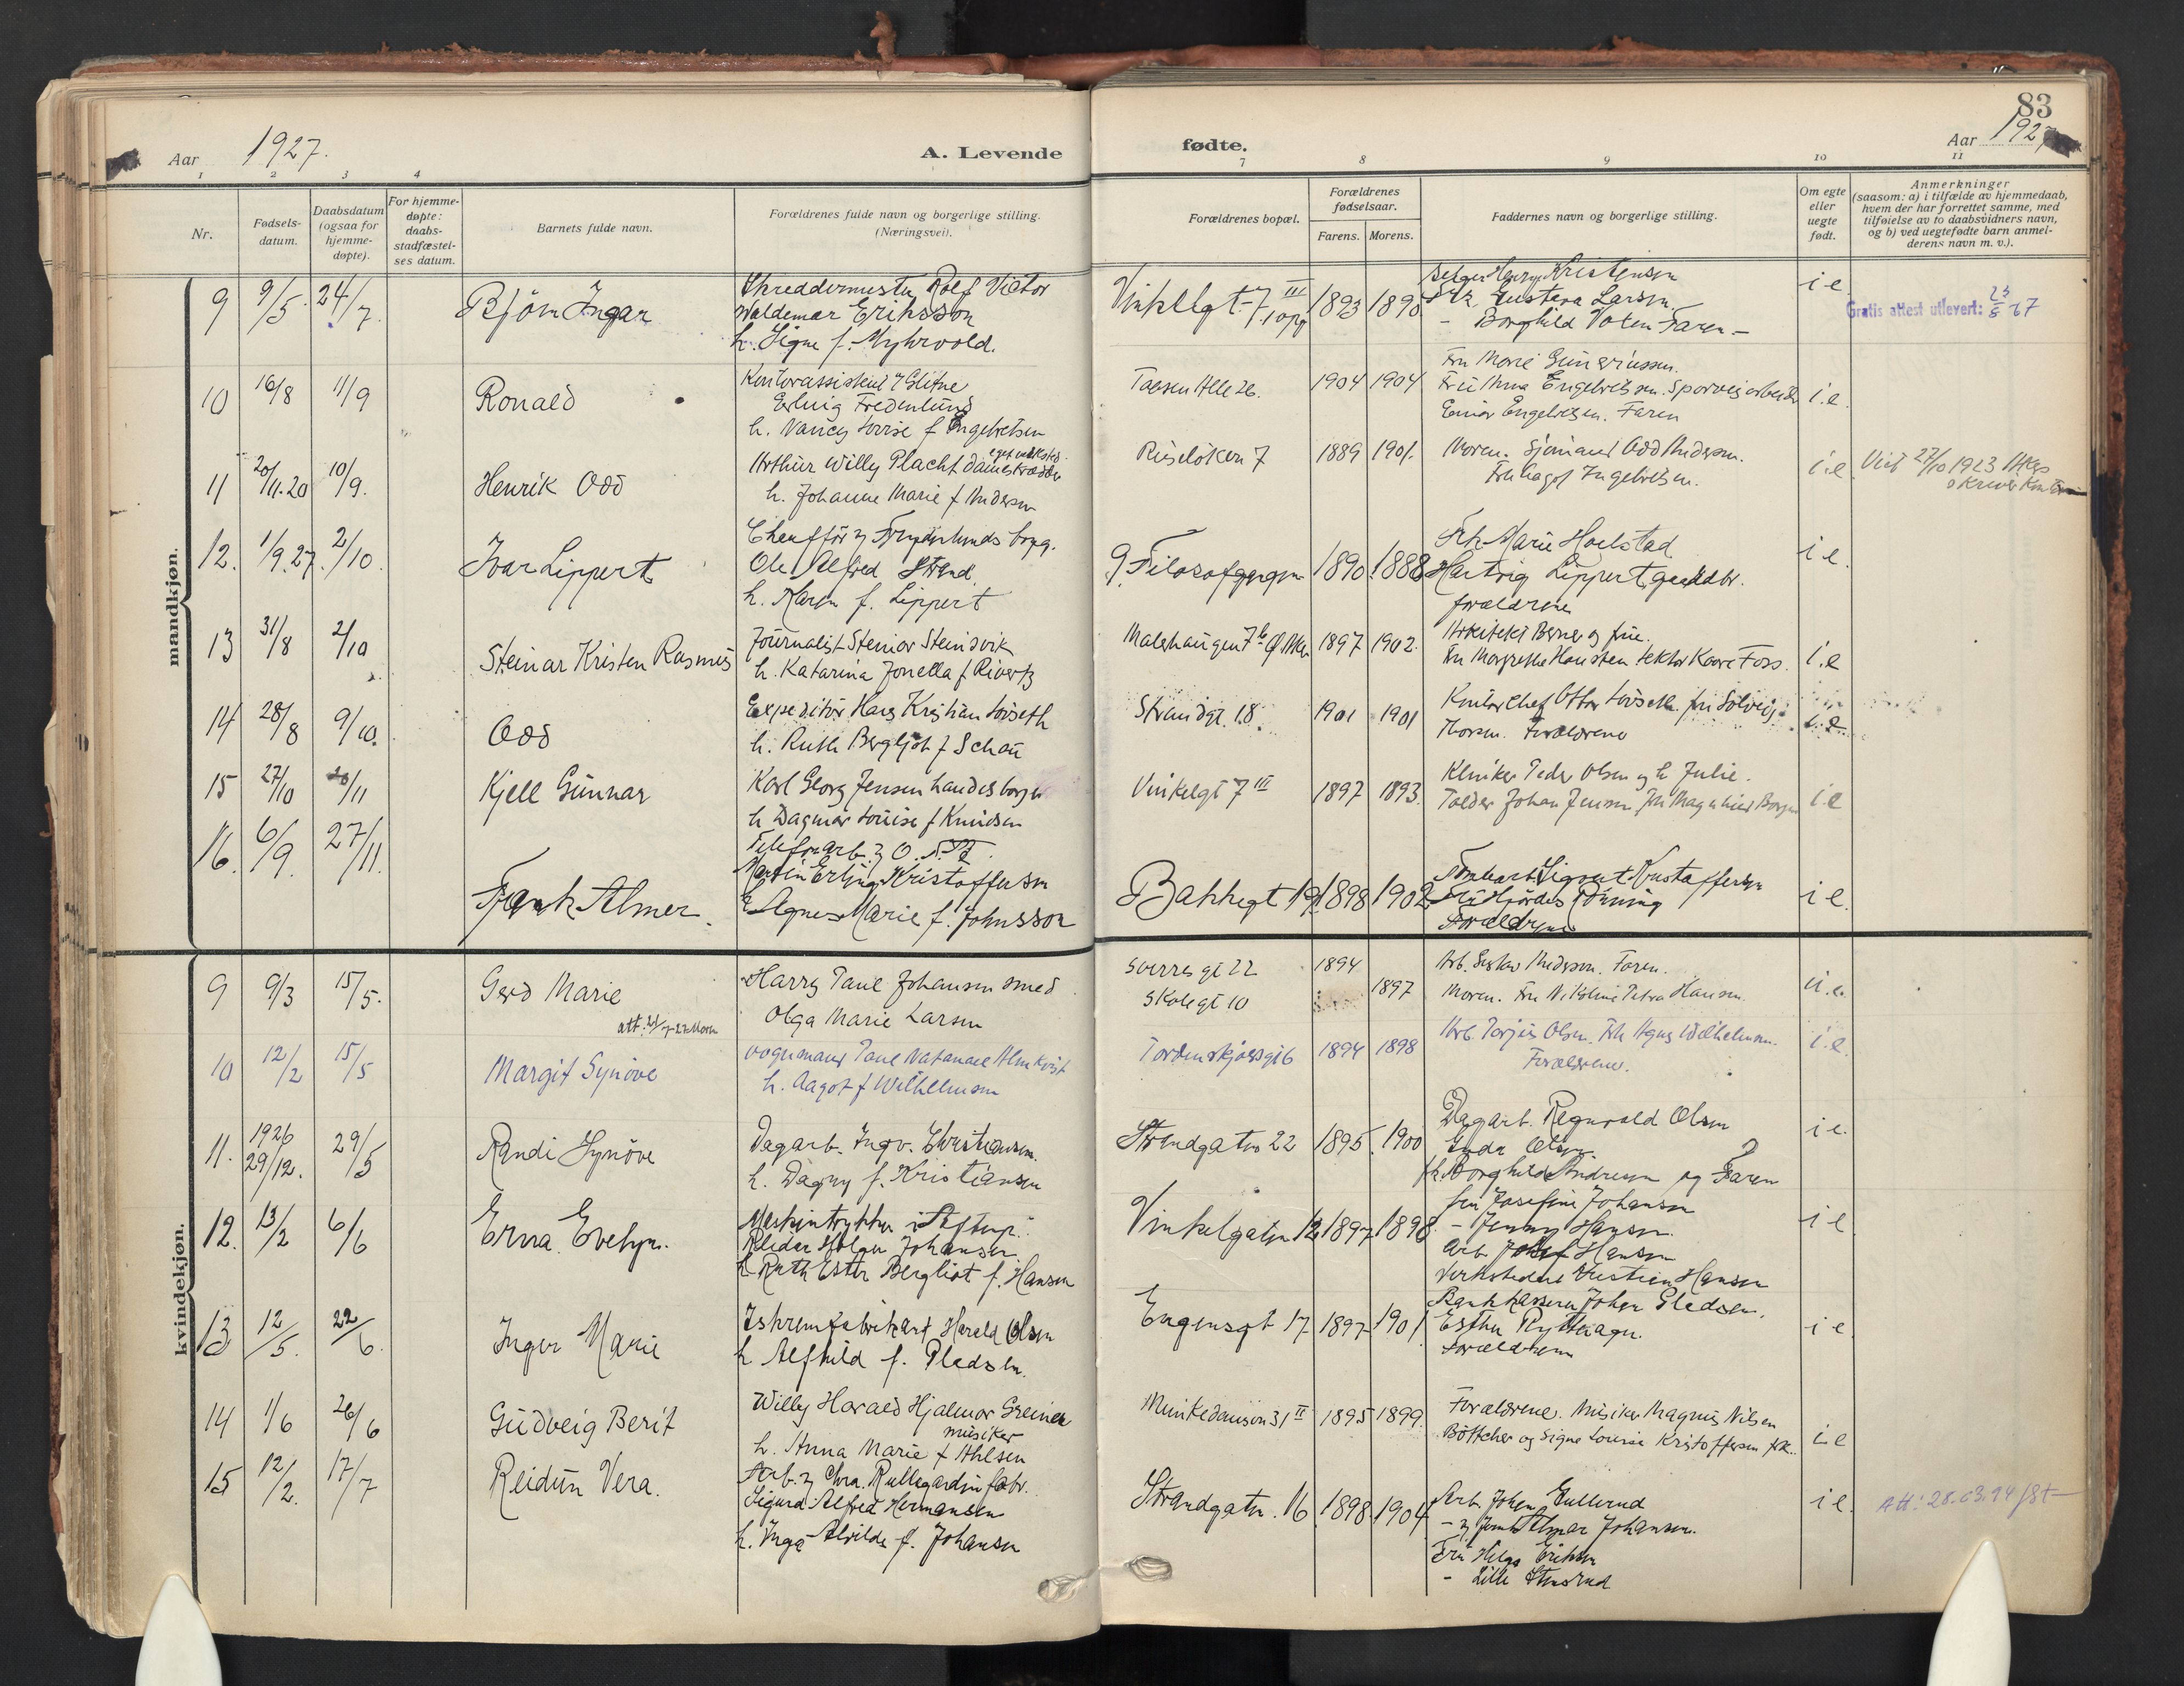 83
Aar 1927.
A. Levende
fødte.
Aar 1927
1 2 3 4
7 8 9 10 11
Nr.
Fødsels-
datum.
Daabsdatum
(ogsaa for
hjemme-
døpte).
For hjemme-
døpte:
daabs-
stadfæstel-
ses datum.
Barnets fulde navn.
Forældrenes fulde navn og borgerlige stilling.
(Næringsvei).
Forældrenes bopæl.
Forældrenes
fødselsaar.
Farens. Morens.
Faddernes navn og borgerlige stilling.
Om egte
eller
uegte
født.
Anmerkninger
(saasom: a) i tilfælde av hjemmedaab,
hvem der har forrettet samme, med
tilføielse av to daabsvidners navn,
og b) ved uegtefødte barn anmel-
derens navn m. v.).
mandkjøn.
9 9/5. 24/7. Bjørn Ingar
Skreddermester Rolf Victor
Waldemar Eriksson
h. Signe f. Myhrvold.
Vinkelgt. 7 III 1893 1895
Henry Kristensen
Gustava Larsen
- Borghild Faren -
i e
Gratis attest utlevert: 23/5 67
10 16/8 11/9 Ronald
Kontorassistent
Erling Fredenlund
h. Nancy Lovise f Engebretsen
Taasen Alle 26. 1904 1904
Fru Marie Gundriussen.
Fru Anna Engebretsen. Sporveisarbeider
Einar Engebretsen. Faren
i.e.
11 20/11.20 10/9. Henrik Odd
Arthur Willy Placht dameskrædder
h. Johanne Marie f Andersen
Ruseløkven 7 1889 1901.
Moren. Sjømand Odd Andersen.
Fru Aagot Ingebretsen.
i.e. Viet 27/10 1923
12. 1/9.27. 2/10. Ivar Lippert
Chauffør v Frydenlunds bryg.
Ole Alfred Strand.
h. Karen f. Lippert
9. Filosofgangen 1890. 1888
Frk Marie Hoelstad
Hartvig Lippert, gaardbr.
forældrene
i e.
13 31/8 2/10 Steinar Kristen Rasmus
Journalist Steinar Steinsvik
h. Katarina Jonella f Rivertz
Malerhaugen 7b Ø Aker 1897 1902.
Arkitekt Berner og frue.
Fru Margrethe Hausten lektor Kaare Foss.
i.e
14 28/8 9/10. Odd
Expeditør Hans Kristian Loiseth
h. Ruth Bergljot f Schau
Strandgt. 18. 1901 1901
Kontorchef Otto Loiseth fru Solveig
Thorsen. Forældrene
i.e.
15 27/10 20/11 Kjell Gunnar
Karl Georg Jensen handelsborger
h Dagmar Louise f Knudsen
Vinkelgt 7 III 1897 1893.
Kliniker Peder Olsen og h Julie.
Tolder Johan Jensen, frk Magnhild Borgen
i.e
16. 6/9. 27/11. Frank Almer.
Telefonarb. v O.
Martin Erling Kristoffersen
h Agnes Marie f. Johnsson
Bakkegt 19 1898 1902
Sigvart Kristoffersen
Fru Hjørdis Rønning
Forældrene
i e.
kvindekjøn.
9 9/3 15/5. Gerd Marie
Att. 21/7-27 Moren
Harry Paul Johansen smed
Olga Marie Larsen
Sverres gt 22 1894
Skolegt 10 1897
Arb. Gustav Andersen. Faren.
Moren. Fru Nikoline Petra Hansen.
u.e.
10 12/2 15/5 Margit Synøve
vognmand Paul Natanael Almkvist
h. Aagot f Wilhelmsen
Tordenskjoldsgt 6 1894 1898
Arb. Torjus Olsen. Frk Agnes Wilhelmsen.
Forældrene.
i.e.
11. 1926 29/12. 29/5 Randi Synøve
Dagarb. Ingv. Christiansen.
h. Dagny f. Kristiansen
Strandgaten 22 1895. 1900
Dagarb. Ragnvald Olsen
Gyda Olsen.
frk. Borghild Andresen og Faren
i e.
12. 13/2 6/6 Erna Evelyn.
Maskintrykker i Aftenp.
Reidar Holger Johansen
h Ruth Ester Bergliot f. Hansen
Vinkelgaten 12 1897 1898
Fru Josefine Johansen
- Jenny Hansen.
Arb. Josef Hansen
Verkstedarb Kristian Hansen
i e.
13 12/5. 22/6. Inger Marie
Iskremfabrikant Harald Olsen
h Alfhild f. Pladsen.
Engensgt 17 1897 1901
Bankkasserer Johan Pladsen.
Esther Rytterager.
Forældrene
i e.
14 1/6 26/6 Gudveig Berit
Willy Harald Hjalmar Greiner
musiker
h. Anna Marie f Ahlsen
Munkedamsvn 31 II 1895 1899.
Forældrene. Musiker Magnus Nilsen
Böttcher og Signe Lovise Kristoffersen frk.
i.e
15 12/2. 17/7 Reidun Vera.
Arb. v Chra. Rullegardinfabr.
Sigurd Alfred Hermansen
h. Inga Alvilde f. Johansen
Strandgaten. 16 1898. 1904
Arb. Johan Gullerud
- v Almar Johansen.
Fru Helga Eriksen
- Lilli Stensrud
i e. Att: 28.03.94